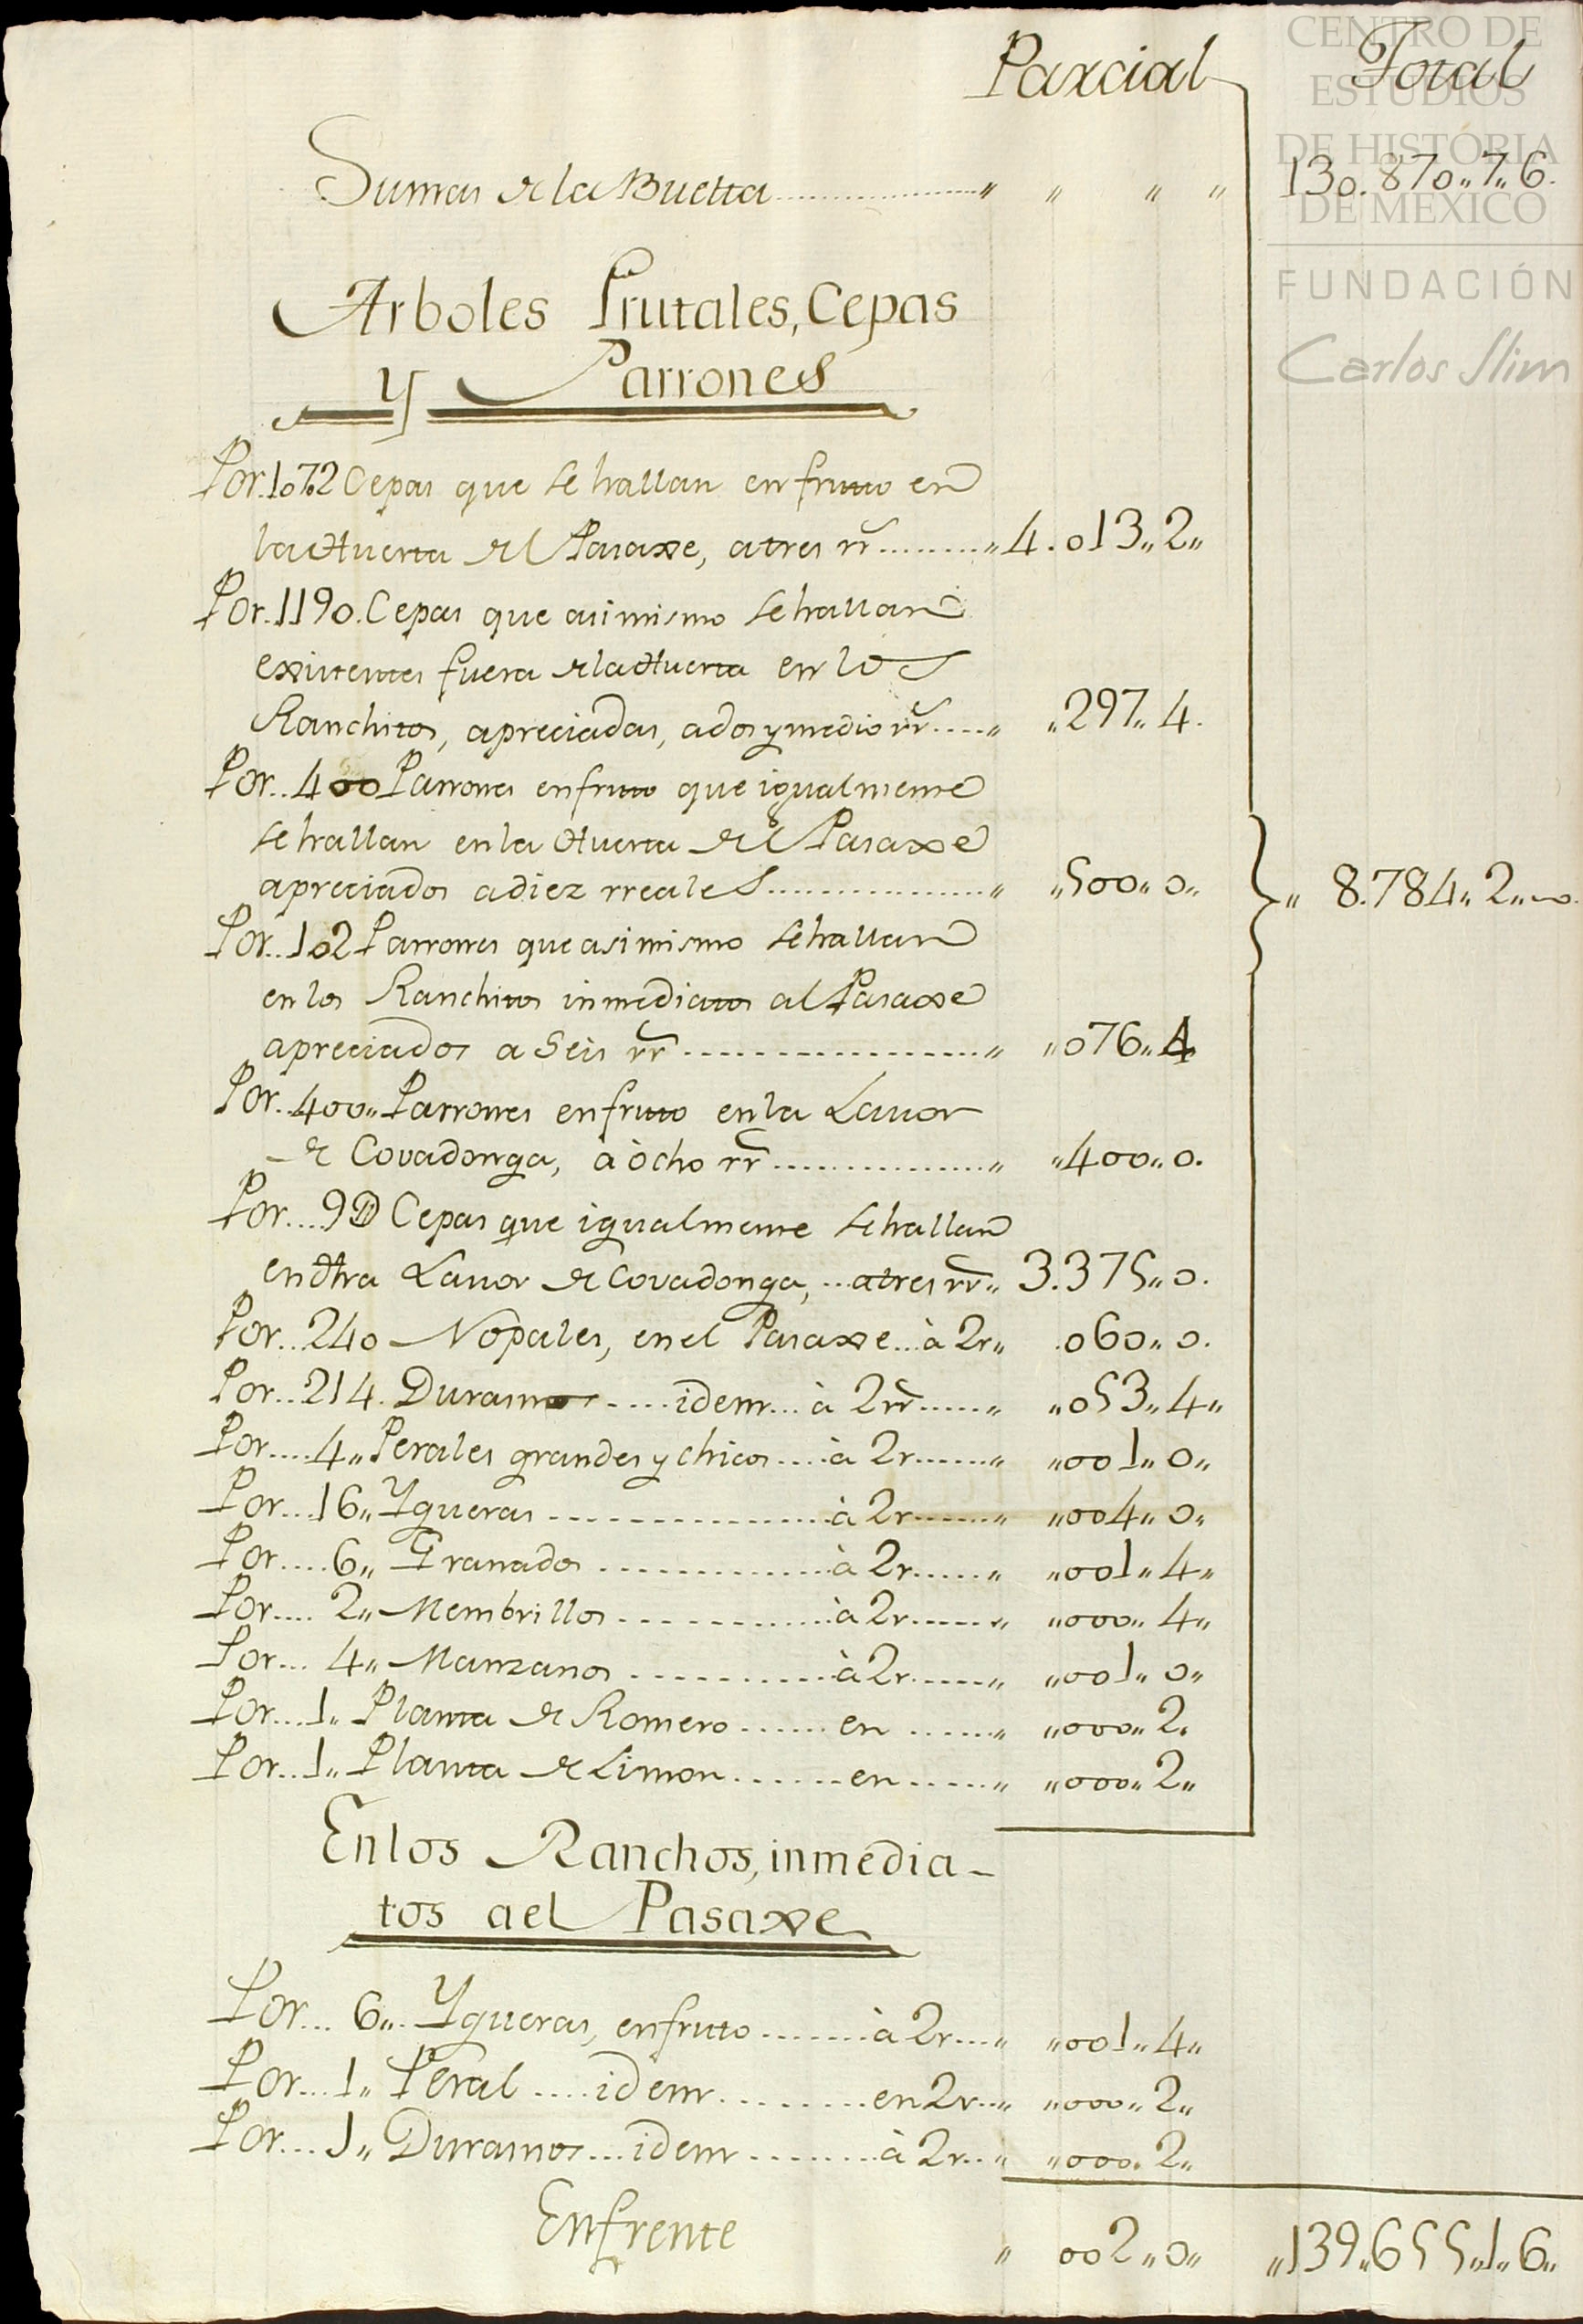 Parcial Total
CENTRO DE
ESTUDIOS
DE HISTORIA
DE MEXICO
FUNDACIÓN
Carlos Slim
Sumas de la Buelta ........ „ „ „ „ 130.870„7„6.
Arboles Frutales, Cepas
y Parrones
Por.1072 Cepas que se hallan en fruto en
la Huerta del Pasaxe, a tres rr̃ ......... „ 4.013„2„
Por.1190.Cepas que asimismo se hallan
existentes fuera de la Huerta en los
Ranchitos, apreciadas, a dos y medio rr̃ ..... „ „297„4.
Por..400 Parrones en fruto que igualmente
se hallan en la Huerta del Pasaxe
apreciados a diez rreales ................. „ „500„0„ „ 8.784„2„0.
Por..102 Parrones que asimismo se hallan
en los Ranchitos inmediatos al Pasaxe
apreciados a Seis rr̃ .................... „ „076„4
Por..400„ Parrones en fruto en la Lavor
de Covadonga, à òcho rr̃ ............... „ „400„0.
Por....9D Cepas que igualmente se hallan
en dhra Lavor de Covadonga, ...a tres rr̃ „ 3.375„0.
Por..240 Nopales, en el Pasaxe...à 2r „ .060„0.
Por..214. Duramos .....idem...à 2rr̃ ...... „ „053„4„
Por....4„ Perales grandes y chicos ....à 2r ....... „ „001„0„
Por...16„ Ygueras ................à 2r ....... „ „004„0„
Por....6„ Granados .............à 2r ...... „ „001„4„
Por.... 2„ Membrillos ............à 2r ...... „ „000„4„
Por... 4„ Manzanos ............à 2r ...... „ „001„0„
Por...1„ Planta de Romero ......en ...... „ „000„2.
Por...1„ Planta de Limon .......en ...... „ „000„2„
En los Ranchos, inmedia-
tos a el Pasaxe
Por... 6„ Ygueras, en fruto ........à 2r .... „ „001„4„
Por...1„ Peral ....idem .........en 2r... „ „000„2„
Por...1„ Duramos ...idem .........à 2r.. „ „000„2„
Enfrente „ 002„0„ „139„655„1„6„